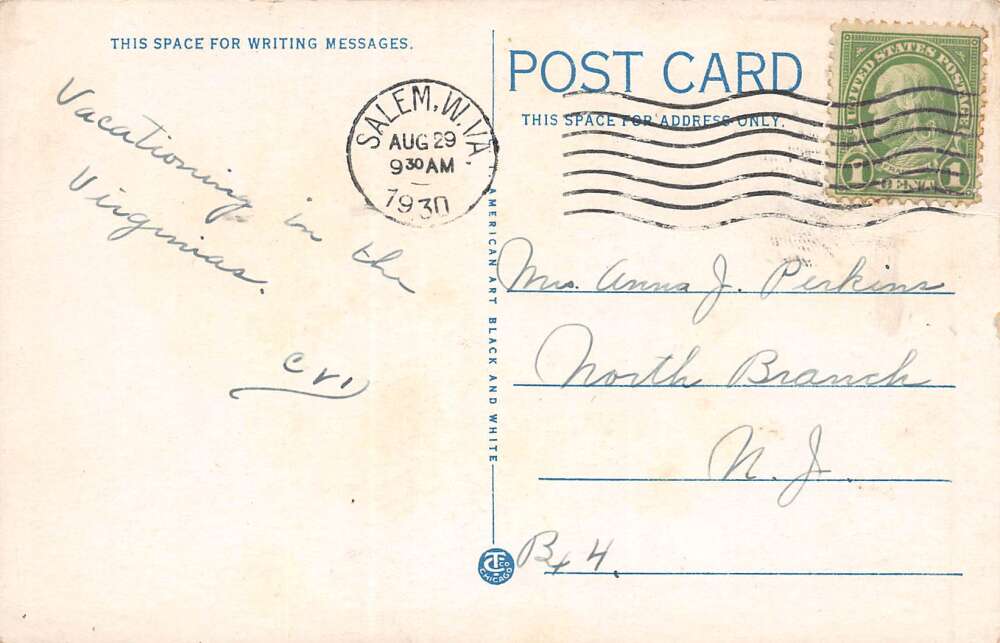 THIS SPACE FOR WRITING MESSAGES.
Vacationing in the
Virginias.
SALEM, W. VA.
AUG 29
9 30 AM
1930
AMERICAN ART BLACK AND WHITE
CTCO CHICAGO
POST CARD
THIS SPACE FOR ADDRESS ONLY.
UNITED STATES POSTAGE
1 CENT 1
Mrs. Anna J. Perkins
North Branch
N. J.
Bx 4.